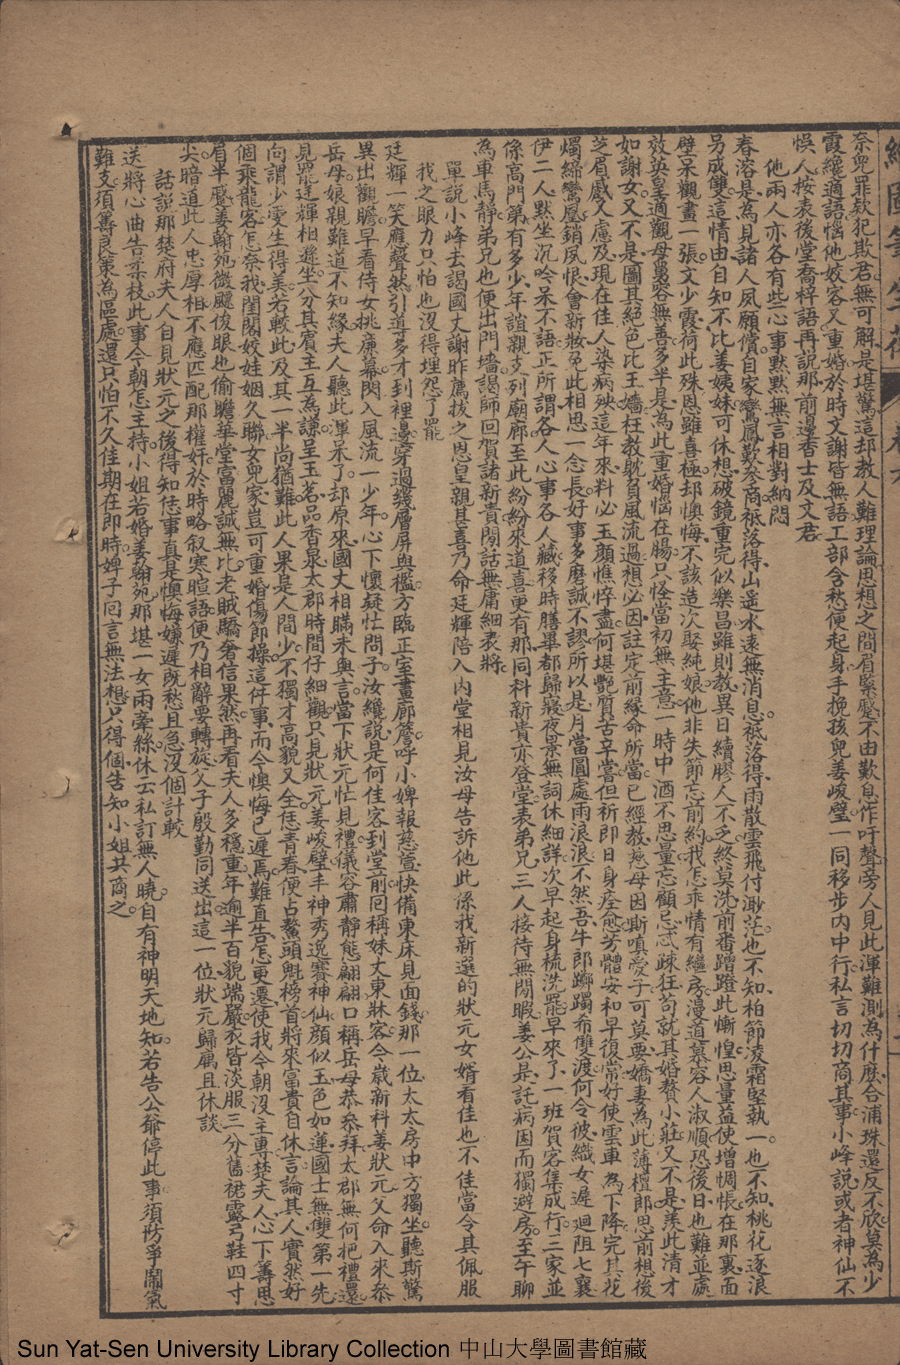 奈兜罪欵犯欺君無可解是堪驚這却教人難理論思想之間眉緊蹙不由歎息怍吁聲旁人見此渾難測為什麼合浦珠還反不欣莫為少
霞纔適語惱他姣容又重婚於時文謝皆無語工部含愁便起身手挽孩兒姜峻璧一同移步內中行私言切切商其事小峰説或者神仙不
悞人按表後堂喬梓語再説那前邊香士及文君
他兩人亦各有些心事默默無言相對納悶
春溶是為見諸人夙願償自家鸞鳳歎參商袛落得山遥水遠無消息袛落得雨散雲飛付渺茫也不知柏節凌霜堅執一也不知桃花逐浪
另成雙這情由自知不比姜姨妹可休想破鏡重完似樂昌雖則教異日續膠人不乏終莫洗前番蹭蹬此慚惶思量益使增惆悵在那裏面
壁呆觀畫一張文少霞荷此殊恩雖喜極却懊悔不該造次娶純娘他非失節忘前約我怎乖情有繼房漫道慕容人淑順恐後日也難並處
效英皇適觀母舅容無善多半是為此重婚惱在腸只怪當初無主意一時中酒不思量忘顧忌忒疎狂苟就其婚贅小莊又不是羨此清才
如謝女又不是圖其絕色比王嬙枉教躭負風流過想必因註定前緣命所當已經教慈母因斯嗔愛子可莫要嬌妻為此薄檀郎思前想後
芝眉感又慮及現在佳人染病殃這年來料必玉顔憔悴盡何堪艷質苦辛嘗但祈即日身痊愈芳體安和早復常好使雲車為下降完其花
燭締鸞凰銷夙恨會新妝免此相思一念長好事多磨誠不謬所以是月當圓處雨浪浪不然吾牛郎躑躅希雙渡何令彼織女遲迴阻七襄
伊二人默坐沉吟呆不語正所謂各人心事各人藏移時膳畢都歸寢夜景無詞休細詳次早起身梳洗罷早來了一班賀客集成行二家並
係高門第有多少年誼親友列廟廊至此紛紛來道喜更有那同科新貴亦登堂表弟兄三人接待無閒暇姜公是託病因而獨避房至午聊
為車馬靜弟兄也便出門墻謁師回賀諸新貴閒話無庸細表將
單説小峰去謁國丈謝昨薦拔之恩皇親甚喜乃命廷輝陪入内堂相見汝母告訴他此係我新選的狀元女婿看佳也不佳當令其佩服
我之眼力只怕也沒得埋怨了罷
廷輝一笑應聲然引道多才到裡邊穿過幾層屏與檻方臨正室畫廊詹呼小婢報慈萱快備東床見面錢那一位太太房中方獨坐聽斯驚
異出觀瞻早看侍女挑簾幕閃入風流一少年心下懷疑忙問子汝纔説是何佳客到堂前囘稱妹丈東牀客今歲新科姜狀元父命入來叅
岳母娘親難道不知緣夫人聽此渾呆了却原來國丈相瞞未與言當下狀元忙見禮儀容肅靜態翩翩口稱岳母恭叅拜太郡無何把禮還
見罷廷輝相遜坐分其賓主互為謙呈玉茗品香泉太郡時間仔細觀只見狀元姜峻璧丰神秀逸賽神仙顏似玉色如蓮國士無雙第一先
向謂少雯生得美若較此及其一半尚猶難此人果是人間少不獨才高貌又全恁青春便占鰲頭魁榜首將來富貴自休言論其人實然好
個乘龍客怎奈我閨閣姣娃姻久聯女兒家豈可重婚傷節操這件事而今懊悔已遲焉難直告怎更遷使我今朝沒主專楚夫人心下籌思
眉半蹙姜翰苑微飃俊眼也偷瞻華堂富麗誠無比老賊驕奢信果然再看夫人多穩重年逾半百貌端嚴衣皆淡服三分舊裙露弓鞋四寸
尖暗道此人忠厚相不應匹配那權奸於時略叙寒暄語便乃相辭要轉旋父子殷勤同送出這一位狀元歸寓且休談
話説那楚府夫人自見狀元之後得知恁事真是懊悔嫌遲既愁且急沒個計較
送將心曲告柔枝此事今朝怎主持小姐若婚姜翰苑那堪一女兩牽絲休云私訂無人曉自有神明天地知若告公爺停此事須防爭鬧氣
難支須籌良策為區處還只怕不久佳期在即時婢子囘言無法想只得個告知小姐共商之
Sun Yat-Sen University Library Collection 中山大學圖書館藏